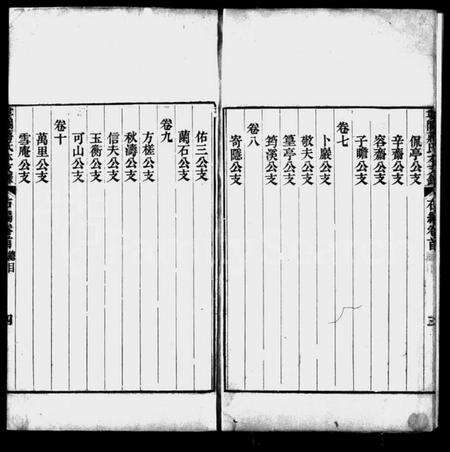 侃亭公支
辛齋公支
容齋公支
子瞻公支
卷七
敬夫公支
篁亭公支
卜巖公支
筠溪公支
卷八
寄隱公支
佑三公支
蘭石公支
卷九
方楼公支
秋濤公支
信夫公支
玉衡公支
可山公支
卷十
萬里公支
雪庵公支
右編卷首
總目
三
四